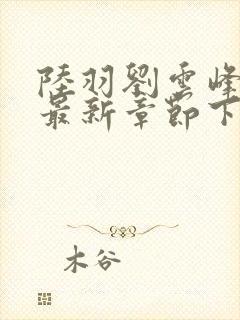 陸羽劉雲峰
最新章節下
木谷